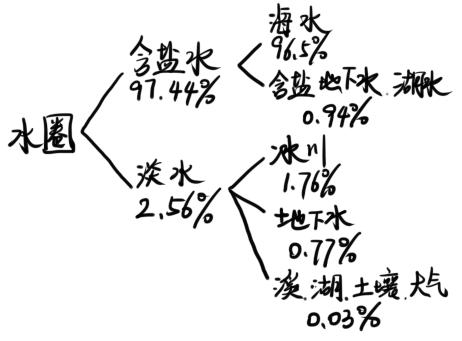 水圈
含盐水
97.44%
海水
96.5%
含盐地下水.湖水
0.94%
淡水
2.56%
冰川
1.76%
地下水
0.77%
溪.湖.土壤.大气
0.03%